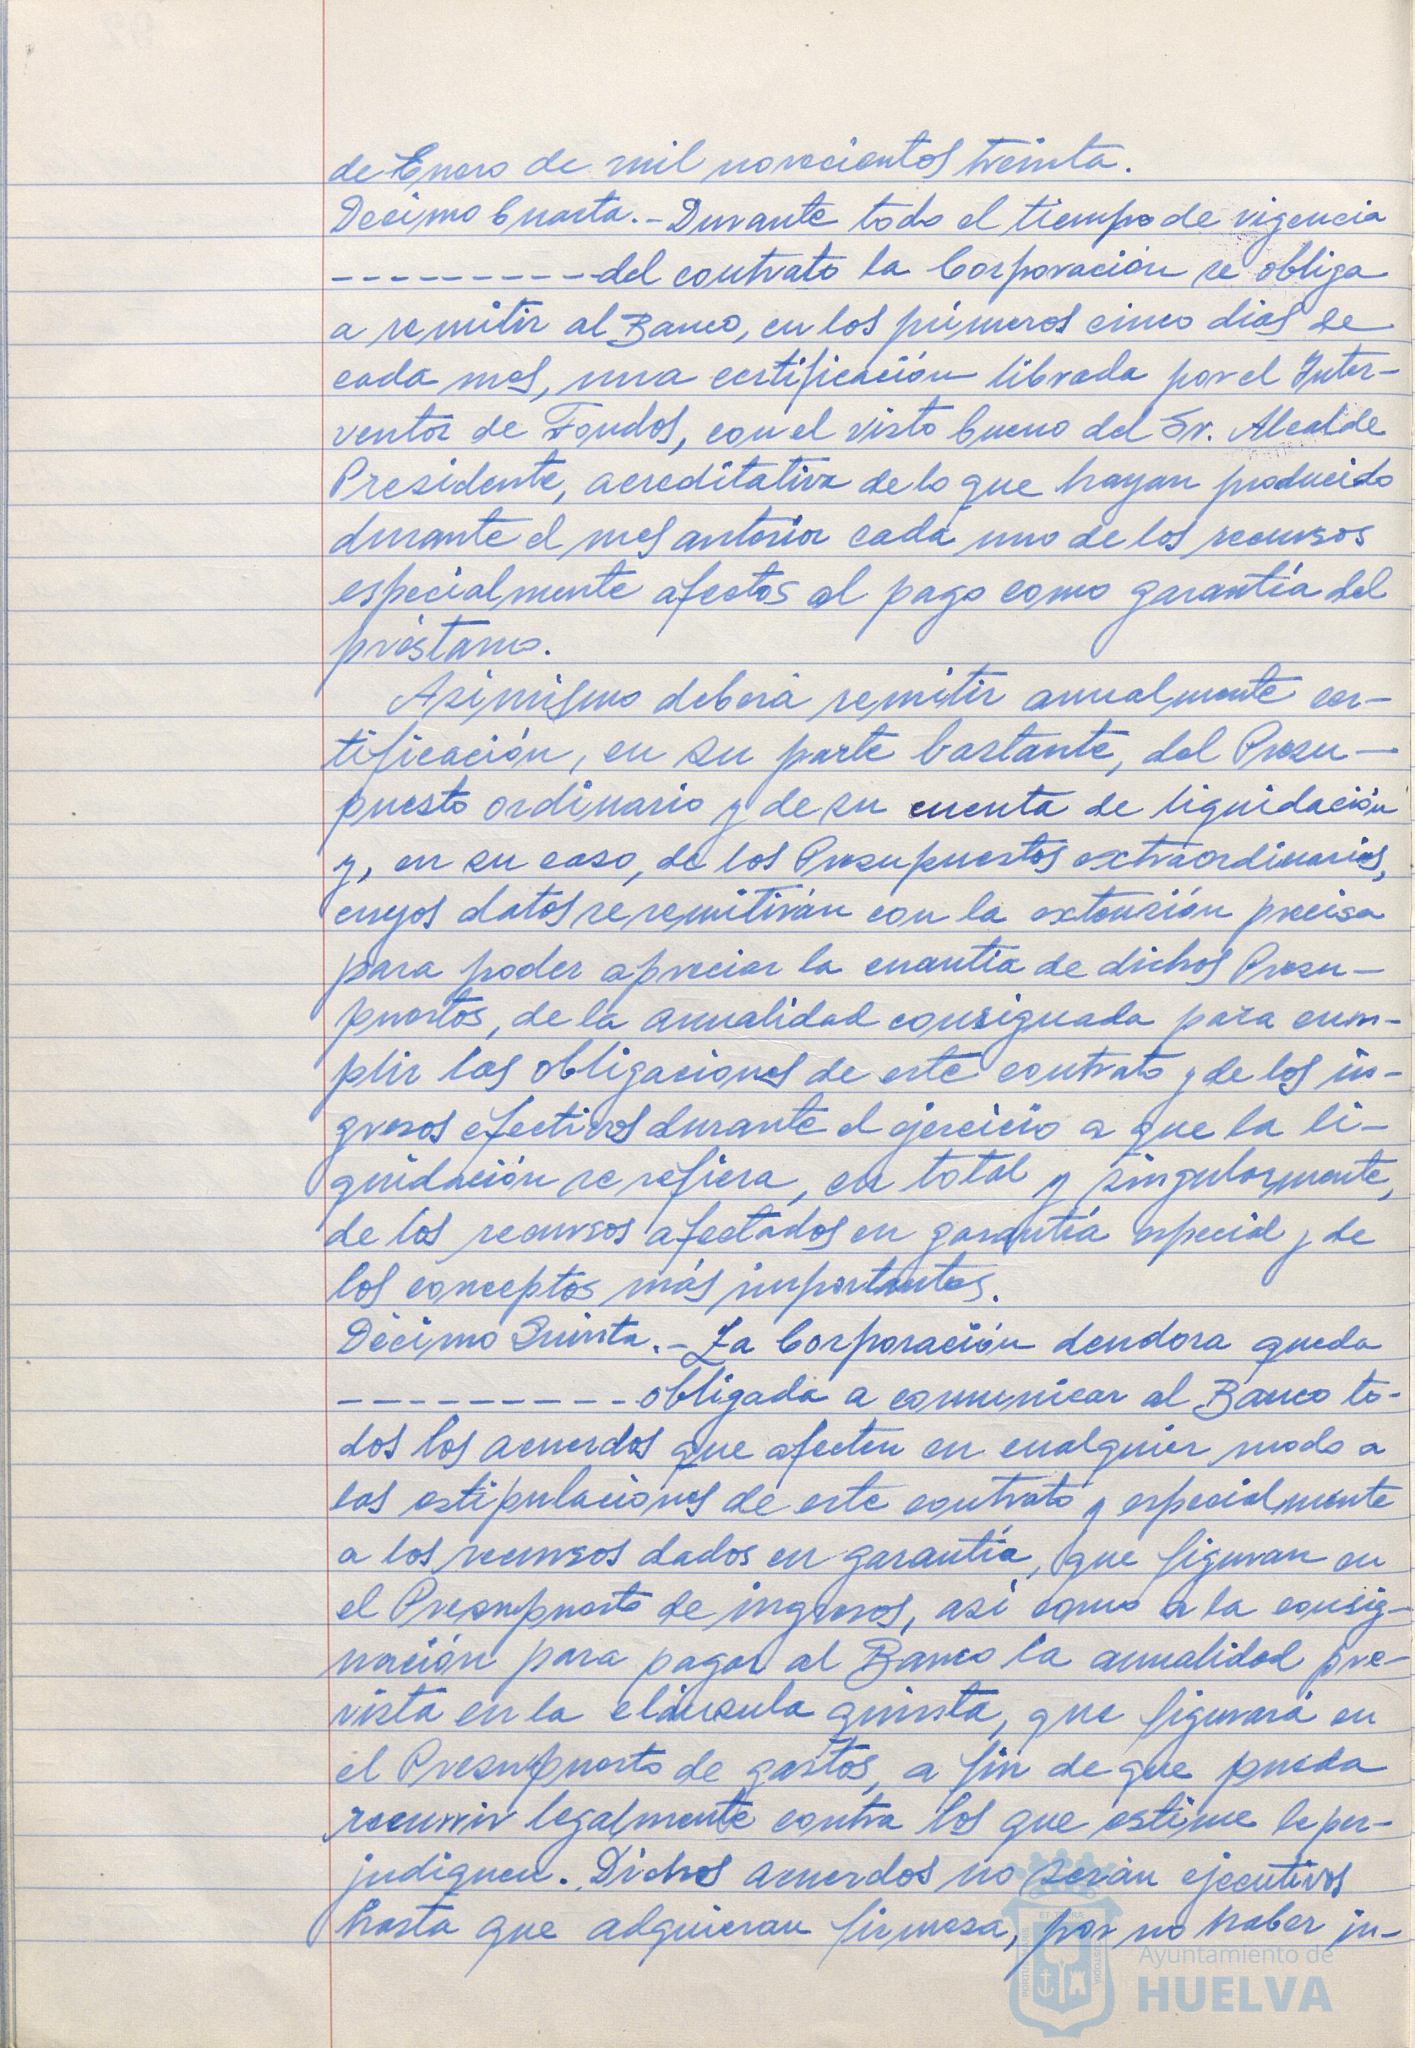 de Enero de mil novecientos treinta.
Décimo Cuarta.- Durante todo el tiempo de vigencia
---------del contrato la Corporación se obliga
a remitir al Banco, en los primeros cinco dias de
cada mes, una certificación librada por el Inter-
ventor de Fondos, con el visto bueno del Sr. Alcalde
Presidente, acreditativa de lo que hayan producido
durante el mes anterior cada uno de los recursos
especialmente afectos al pago como garantía del
préstamo.
Asimismo deberá remitir anualmente cer-
tificación, en su parte bastante, del Presu-
puesto ordinario y de su cuenta de liquidación
y, en su caso, de los Presupuestos extraordinarios,
cuyos datos se remitirán con la extensión precisa
para poder apreciar la cuantía de dichos Presu-
puestos, de la anualidad consignada para cum-
plir las obligaciones de este contrato y de los in-
gresos efectivos durante el ejercicio a que la li-
quidación se refiera, en total y singularmente,
de los recursos afectados en garantía especial y de
los conceptos más importantes.
Décimo Quinta.- La Corporación deudora queda
---------obligada a comunicar al Banco to-
dos los acuerdos que afecten en cualquier modo a
las estipulaciones de este contrato y especialmente
a los recursos dados en garantía, que figuran en
el Presupuesto de ingresos, así como a la consig-
nación para pagar al Banco la anualidad pre-
vista en la cláusula quinta, que figurará en
el Presupuesto de gastos, a fin de que pueda
recurrir legalmente contra los que estime le per-
judiquen. Dichos acuerdos no serán ejecutivos
hasta que adquieran firmeza, por no haber in-
Ayuntamiento de
HUELVA